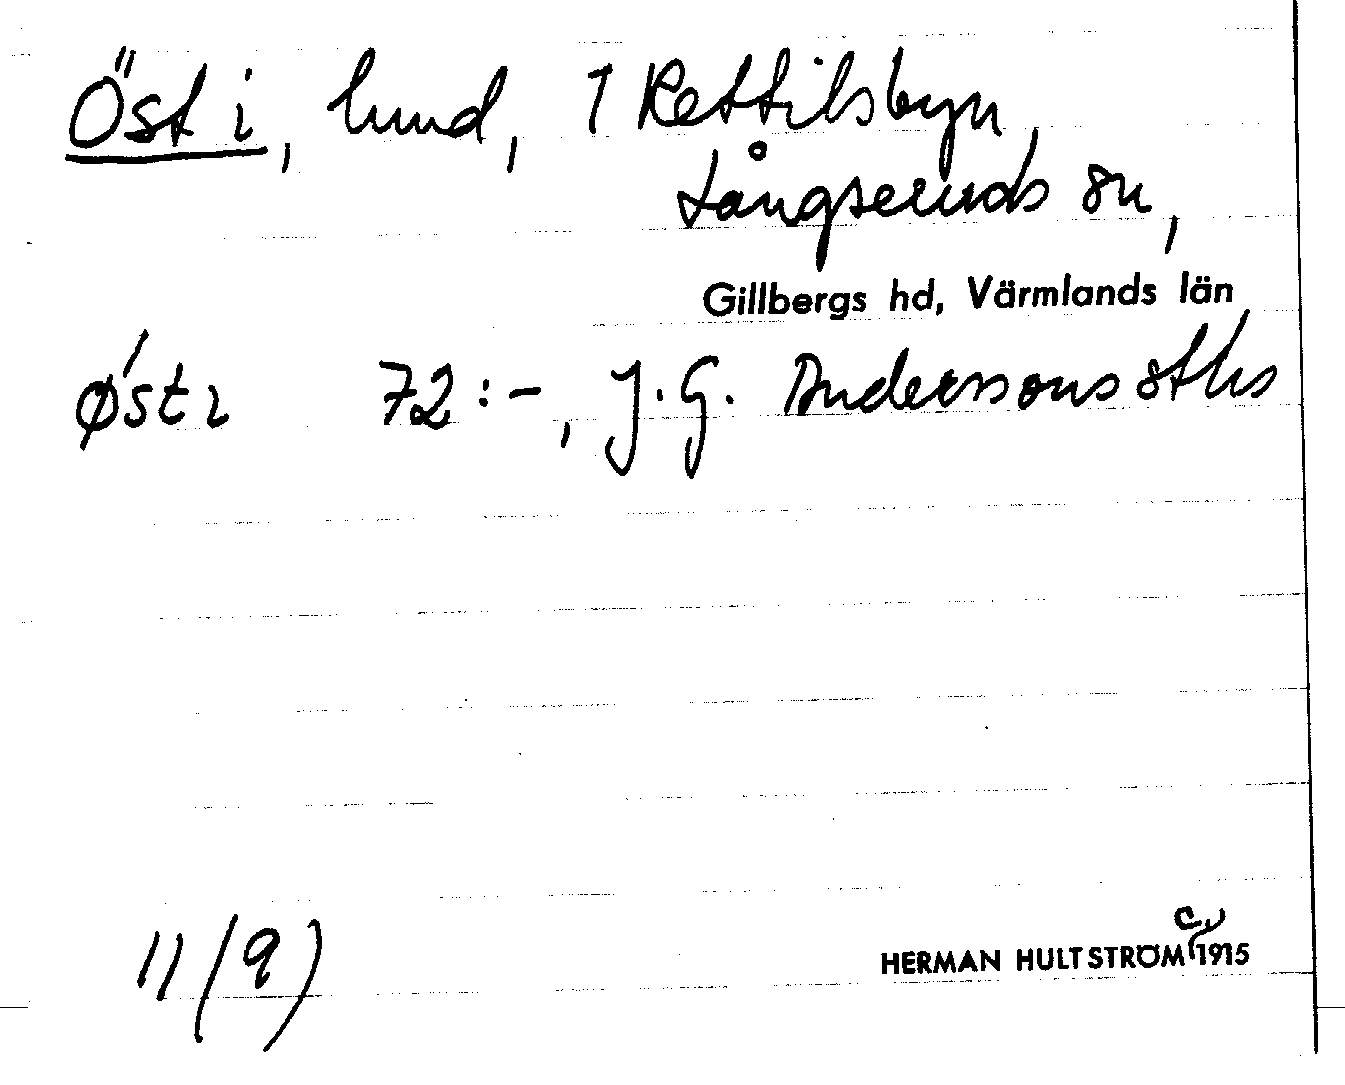 Öst i, lund, 1 Kettilsbyn,
Långseruds sn,
Gillbergs hd, Värmlands län
ǿst ɩ 72:-, J.G. Anderssons sths
11 (9)
HERMAN HULTSTRÖM C. 1915